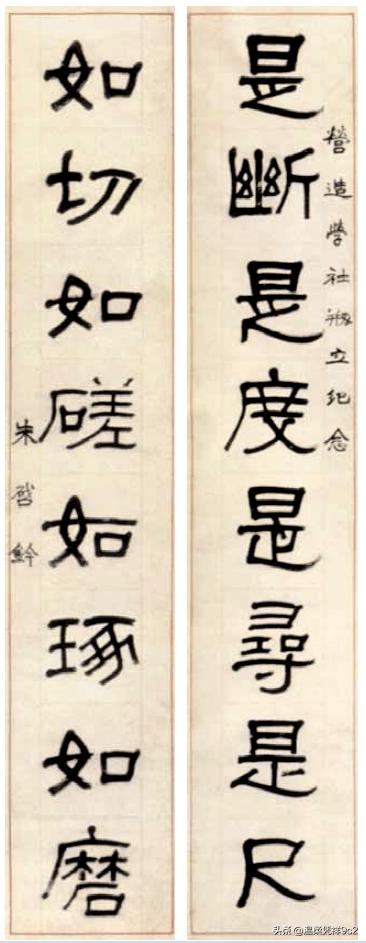 營造學社刱立紀念
是斷是度是尋是尺
如切如磋如琢如磨
朱啓鈐
头条 @温柔凭祥9c2